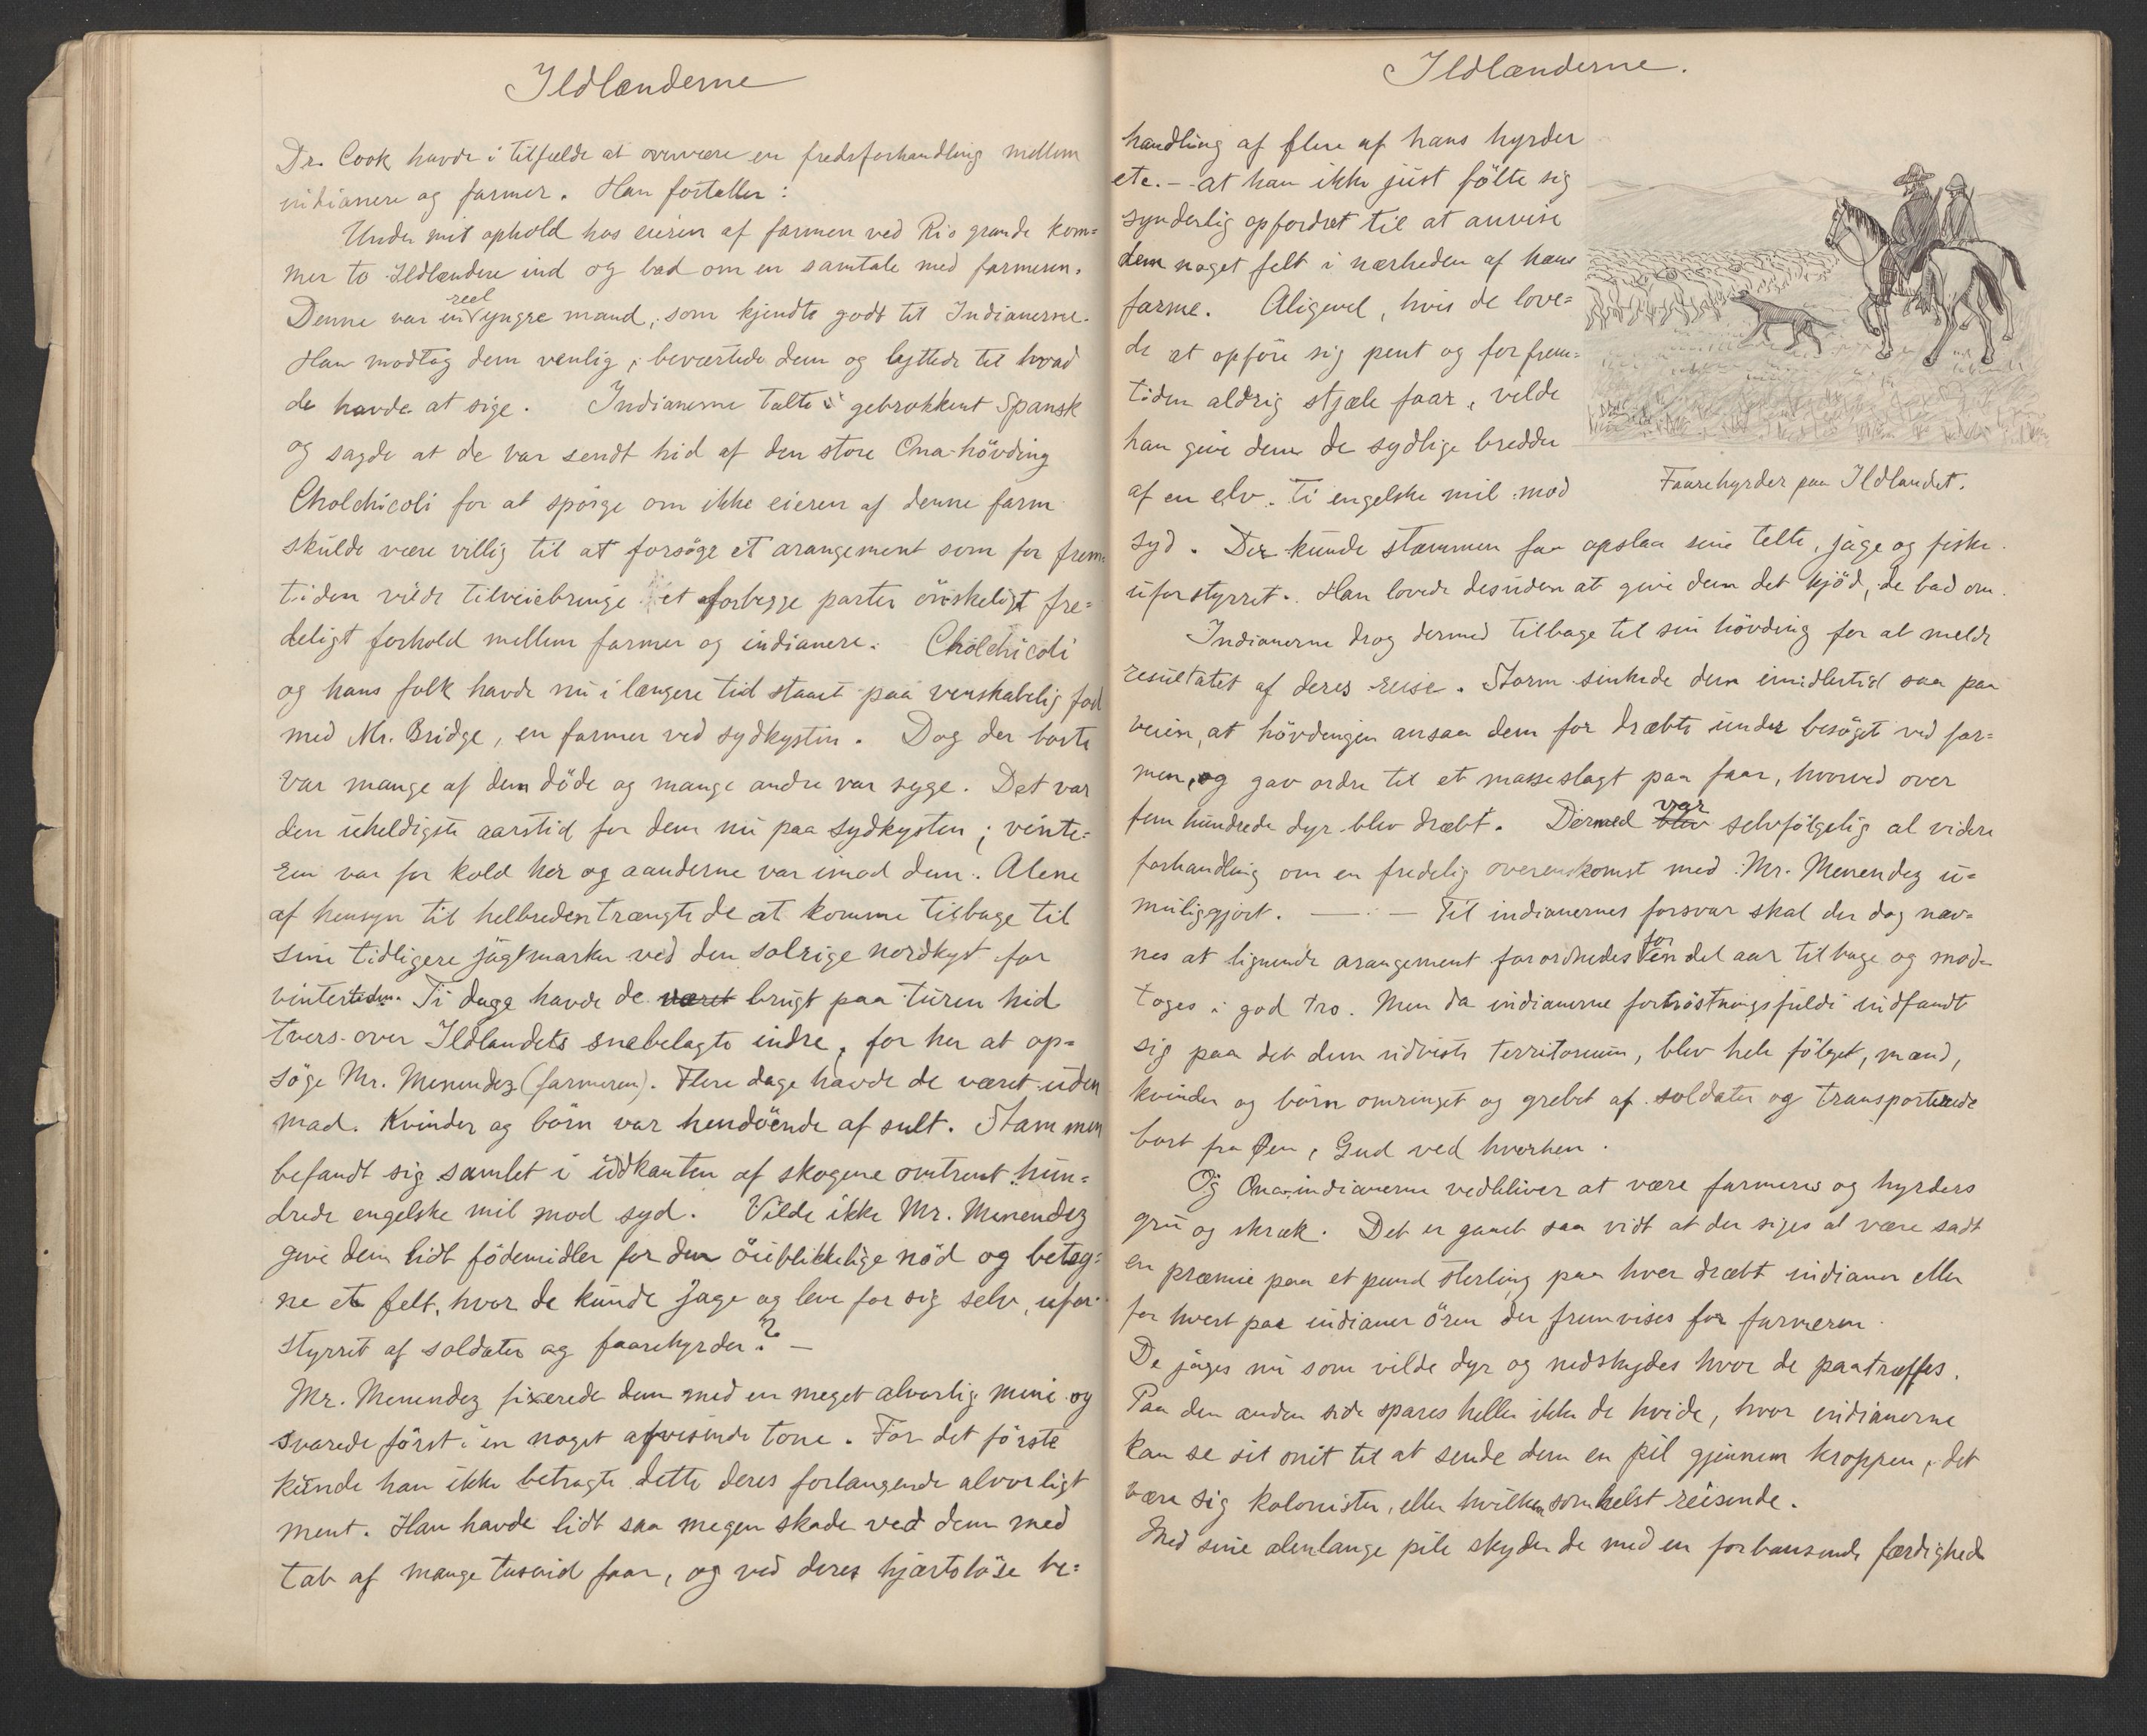 Ildlænderne
Dr. Cook havde i tilfælde at overvære en fredsforhandling mellem
indianere og farmer. Han fortæller:
Under mit ophold hos eieren af farmen ved Rio grande kom=
mer to Ildlændere ind og bad om en samtale med farmeren.
Denne var en reel yngre mand, som kjendte godt til Indianerne.
Han modtog dem venlig, beværtede dem og lyttede til hvad
de havde at sige. Indianerne talte i gebrokkent Spansk
og sagde at de var sendt hid af den store Ona-hövding
Cholchicoli for at spörge om ikke eieren af denne farm
skulde være villig til at forsöge et arangement som for frem=
tiden vilde tilveiebringe et forbegge parter önskeligt fre=
deligt forhold mellem farmer og indianere. Cholchicoli
og hans folk havde nu i længere tid staaet paa venskabelig fod
med Mr. Bridge, en farmer ved sydkysten. Dog der borte
var mange af dem döde og mange andre var syge. Det var
den uheldigste aarstid for dem nu paa sydkysten; vinte=
ren var for kold her og aanderne var imod dem. Alene
af hensyn til helbreden trængte de at komme tilbage til
sine tidligere jagtmarker ved den solrige nordkyst for
vintertiden. Ti dage havde de været brugt paa turen hid
tvers over Ildlandets snebelagte indre, for her at op=
söge Mr. Menendez (farmeren). Flere dage havde de været uden
mad. Kvinder og börn var hendöende af sult. Stammen
befandt sig samlet i udkanten af skogene omtrent hun=
drede engelske mil mod syd. Vilde ikke Mr. Menendez
give dem lidt födemidler for den öieblikkelige nöd og beteg=
ne et felt, hvor de kunde jage og leve for sig selv, ufor=
styrret af soldater og faarehyrder? —
Mr. Menendez fixerede dem med en meget alvorlig mine og
svarede först i en noget afvisende tone. For det förste
kunde han ikke betragte dette deres forlangende alvorligt
ment. Han havde lidt saa megen skade ved dem med
tab af mange tusind faar, og ved deres hjærtelöse be=
Ildlænderne.
handling af flere af hans hyrder
etc. — at han ikke just fölte sig
synderlig opfordret til at anvise
dem noget felt i nærheden af hans
farme. Aligevel, hvis de love=
de at opföre sig pent og for frem=
tiden aldrig stjæle faar, vilde
han give dem de sydlige bredder
af en elv. Ti engelske mil mod
Faarehyrder paa Ildlandet.
syd. Der kunde stammen faa opslaa sine telte, jage og fiske
uforstyrret. Han lovede desuden at give dem det kjöd, de bad om.
Indianerne drog dermed tilbage til sin hövding for at melde
resultatet af deres reise. Storm sinkede dem imidlertid saa paa
veien, at hövdingen ansaa dem for dræbte under besöget ved far=
men, og gav ordre til et masseslagt paa faar, hvorved over
fem hundrede dyr blev dræbt. Dermed blev var selvfölgelig al videre
forhandling om en fredelig overenskomst med Mr. Menendez u=
muliggjort. — . — Til indianernes forsvar skal der dog næv=
nes at lignende arangement forordnedes for en del aar tilbage og mod=
toges i god tro. Men da indianerne fortröstningsfulde indfandt
sig paa det dem udviste territorium, blev hele fölget, mænd,
kvinder og börn omringet og grebet af soldater og transporterede
bort fra Öen, Gud ved hvorhen.
Og Ona-indianerne vedbliver at være farmeres og hyrders
gru og skræk. Det er gaaet saa vidt at der siges at være sadt
en præmie paa et pund sterling paa hver dræbt indianer eller
for hvert par indianer ören der fremvises for farmeren.
De jages nu som vilde dyr og nedskydes hvor de paatræffes.
Paa den anden side spares heller ikke de hvide, hvor indianerne
kan se sit snit til at sende dem en pil gjennem kroppen, det
være sig kolonister, eller hvilken somhelst reisende.
Med sine alenlange pile skyder de med en forbausende færdighed